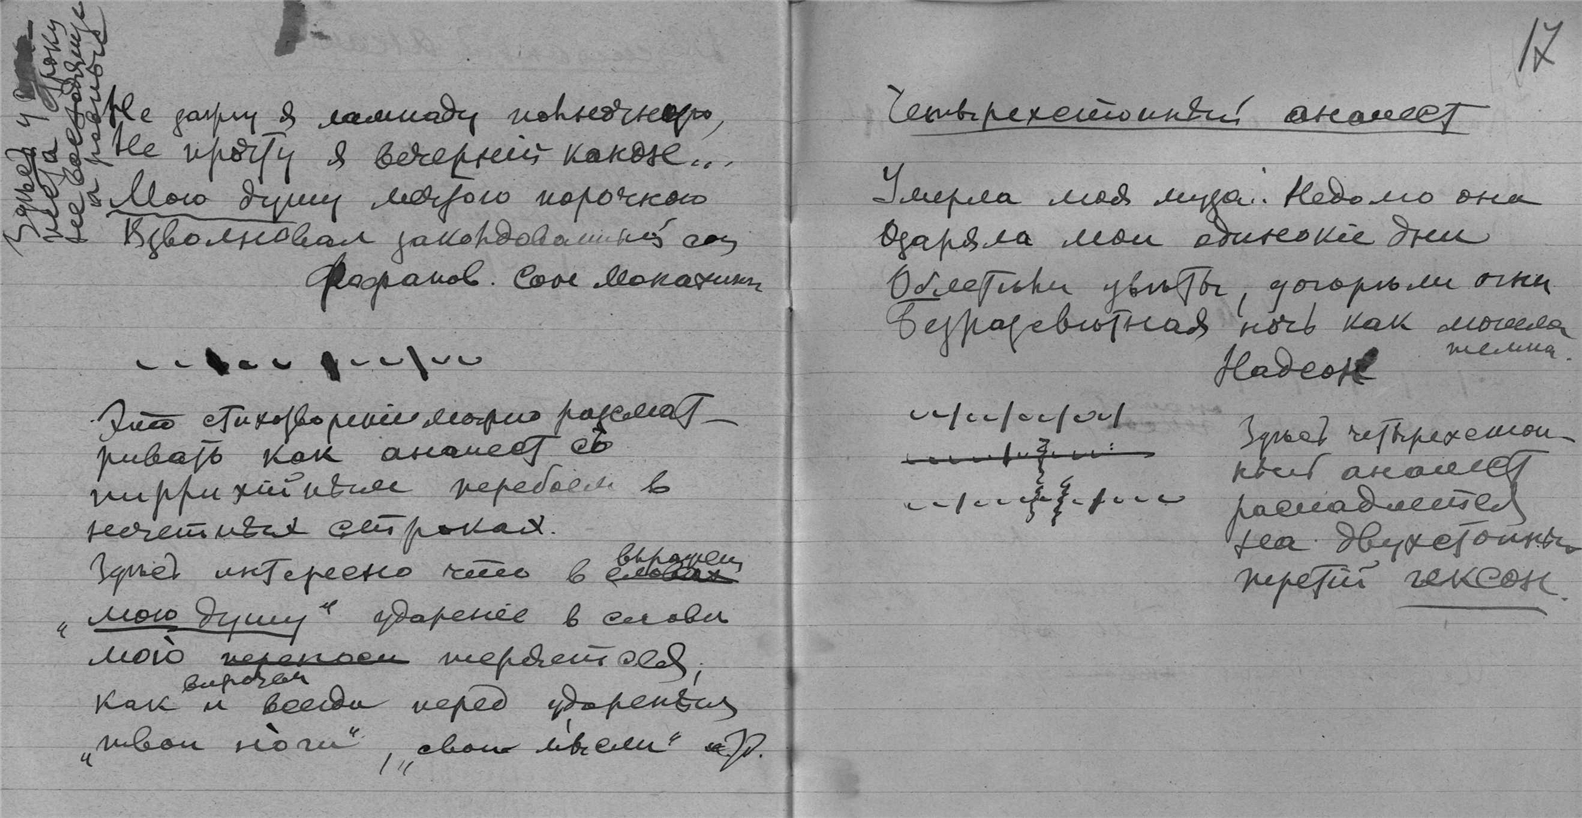 Здѣсь у
нета строку
не восходящую
а равную
Не зажгу я лампаду полночную,
Не прочту я вечерній канон...
Мою душу мечтою порочною
Взволновал заколдованный сон
Фофанов. Сон монахини
Это стихотворение можно рассмат-
ривать как анапест съ
пиррихійным перебоем в
нечетных строках.
Здѣсь интересно что в выражении
„мою душу“ ударение в слове
мою теряется,
как впрочем и всегда перед ударением
„твои ноги“, „свои мысли“ и др.
17
Четырехстопный анапест
Умерла моя муза.. Недолго она
Озаряла мои одинокіе дни
Облетѣли цвѣты, догорѣли огни
Безразсвѣтная ночь как могила
темна.
Надсон
Здѣсь четырехстоп-
ный анапест
распадается
на двухстопный
третій пексон.